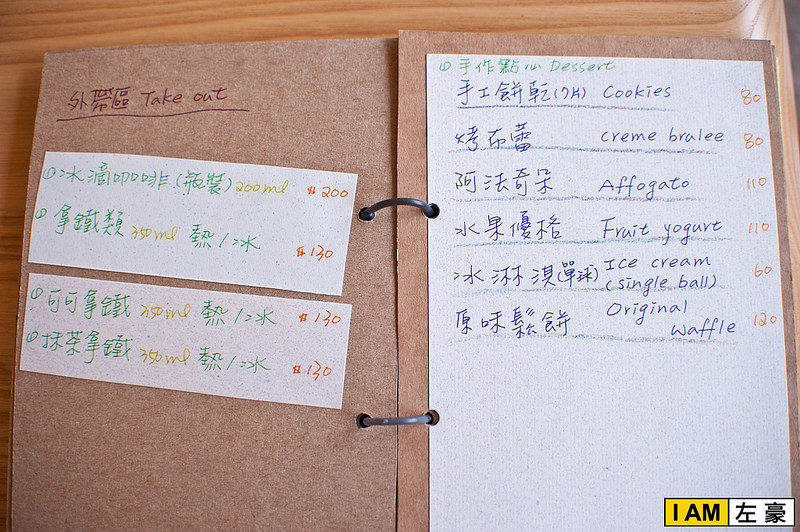 外帶區 Take out
冰滴咖啡(瓶裝) 200ml $200
拿鐵類 350ml 熱/冰 $130
可可拿鐵 350ml 熱/冰 $130
抹茶拿鐵 350ml 熱/冰 $130
手作點心 Dessert
手工餅乾(7片) Cookies 80
烤布蕾 creme brulee 80
阿法奇朵 Affogato 110
水果優格 Fruit yogurt 110
冰淋淇(單球) Ice cream
(single ball) 60
原味鬆餅 Original
Waffle 120
I AM 左豪